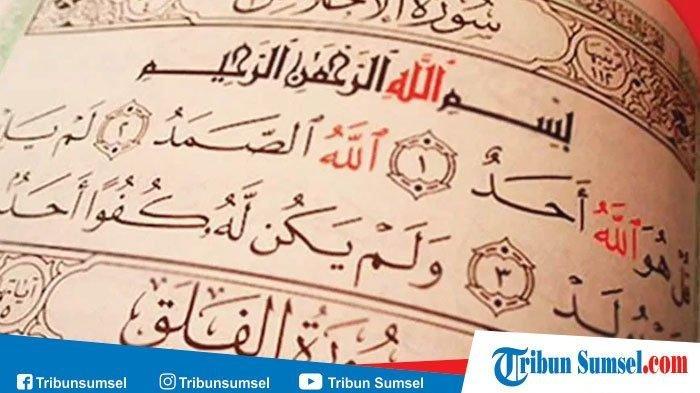 سُورَةُ الإِخْلَاصِ
ترتيبها ١١٢
بِسْمِ ٱللَّهِ ٱلرَّحْمَٰنِ ٱلرَّحِيمِ
هُوَ ٱللَّهُ أَحَدٌ ١ ٱللَّهُ ٱلصَّمَدُ ٢ لَمْ يَلِ
يُولَدْ ٣ وَلَمْ يَكُن لَّهُۥ كُفُوًا أَحَدٌ
سُورَةُ الفَلَقِ
آياتها ٥
Tribun Sumsel.com
Tribunsumsel
Tribunsumsel
Tribun Sumsel